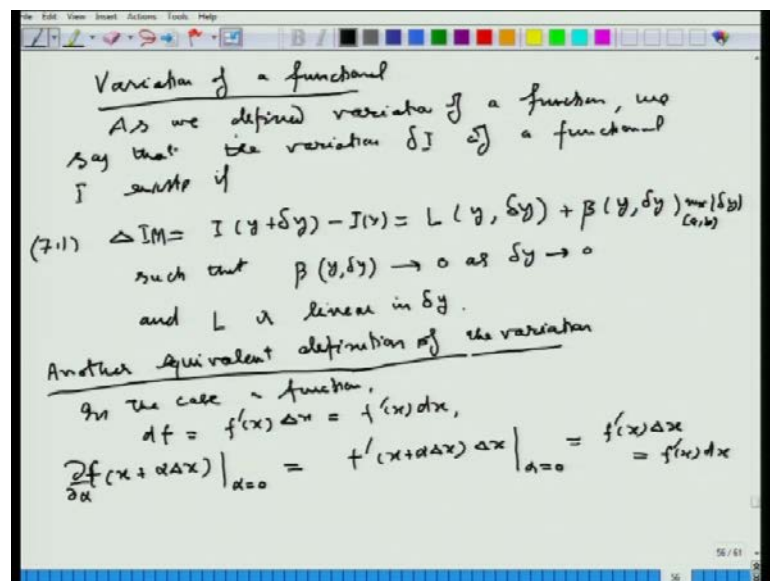 File Edit View Insert Actions Tools Help
Variation of a functional
As we defined variation of a function, we
say that the variation δI of a functional
I exists if
(7.1) ΔI(y) = I(y+δy) - I(y) = L(y, δy) + β(y, δy) max|δy|
[a,b]
such that β(y, δy) → 0 as δy → 0
and L is linear in δy.
Another equivalent definition of the variation
In the case a function,
df = f'(x) Δx = f'(x) dx,
∂f/∂α (x + αΔx)|α=0 = f'(x+αΔx) Δx|α=0 = f'(x) Δx
= f'(x) dx
56 / 61
56